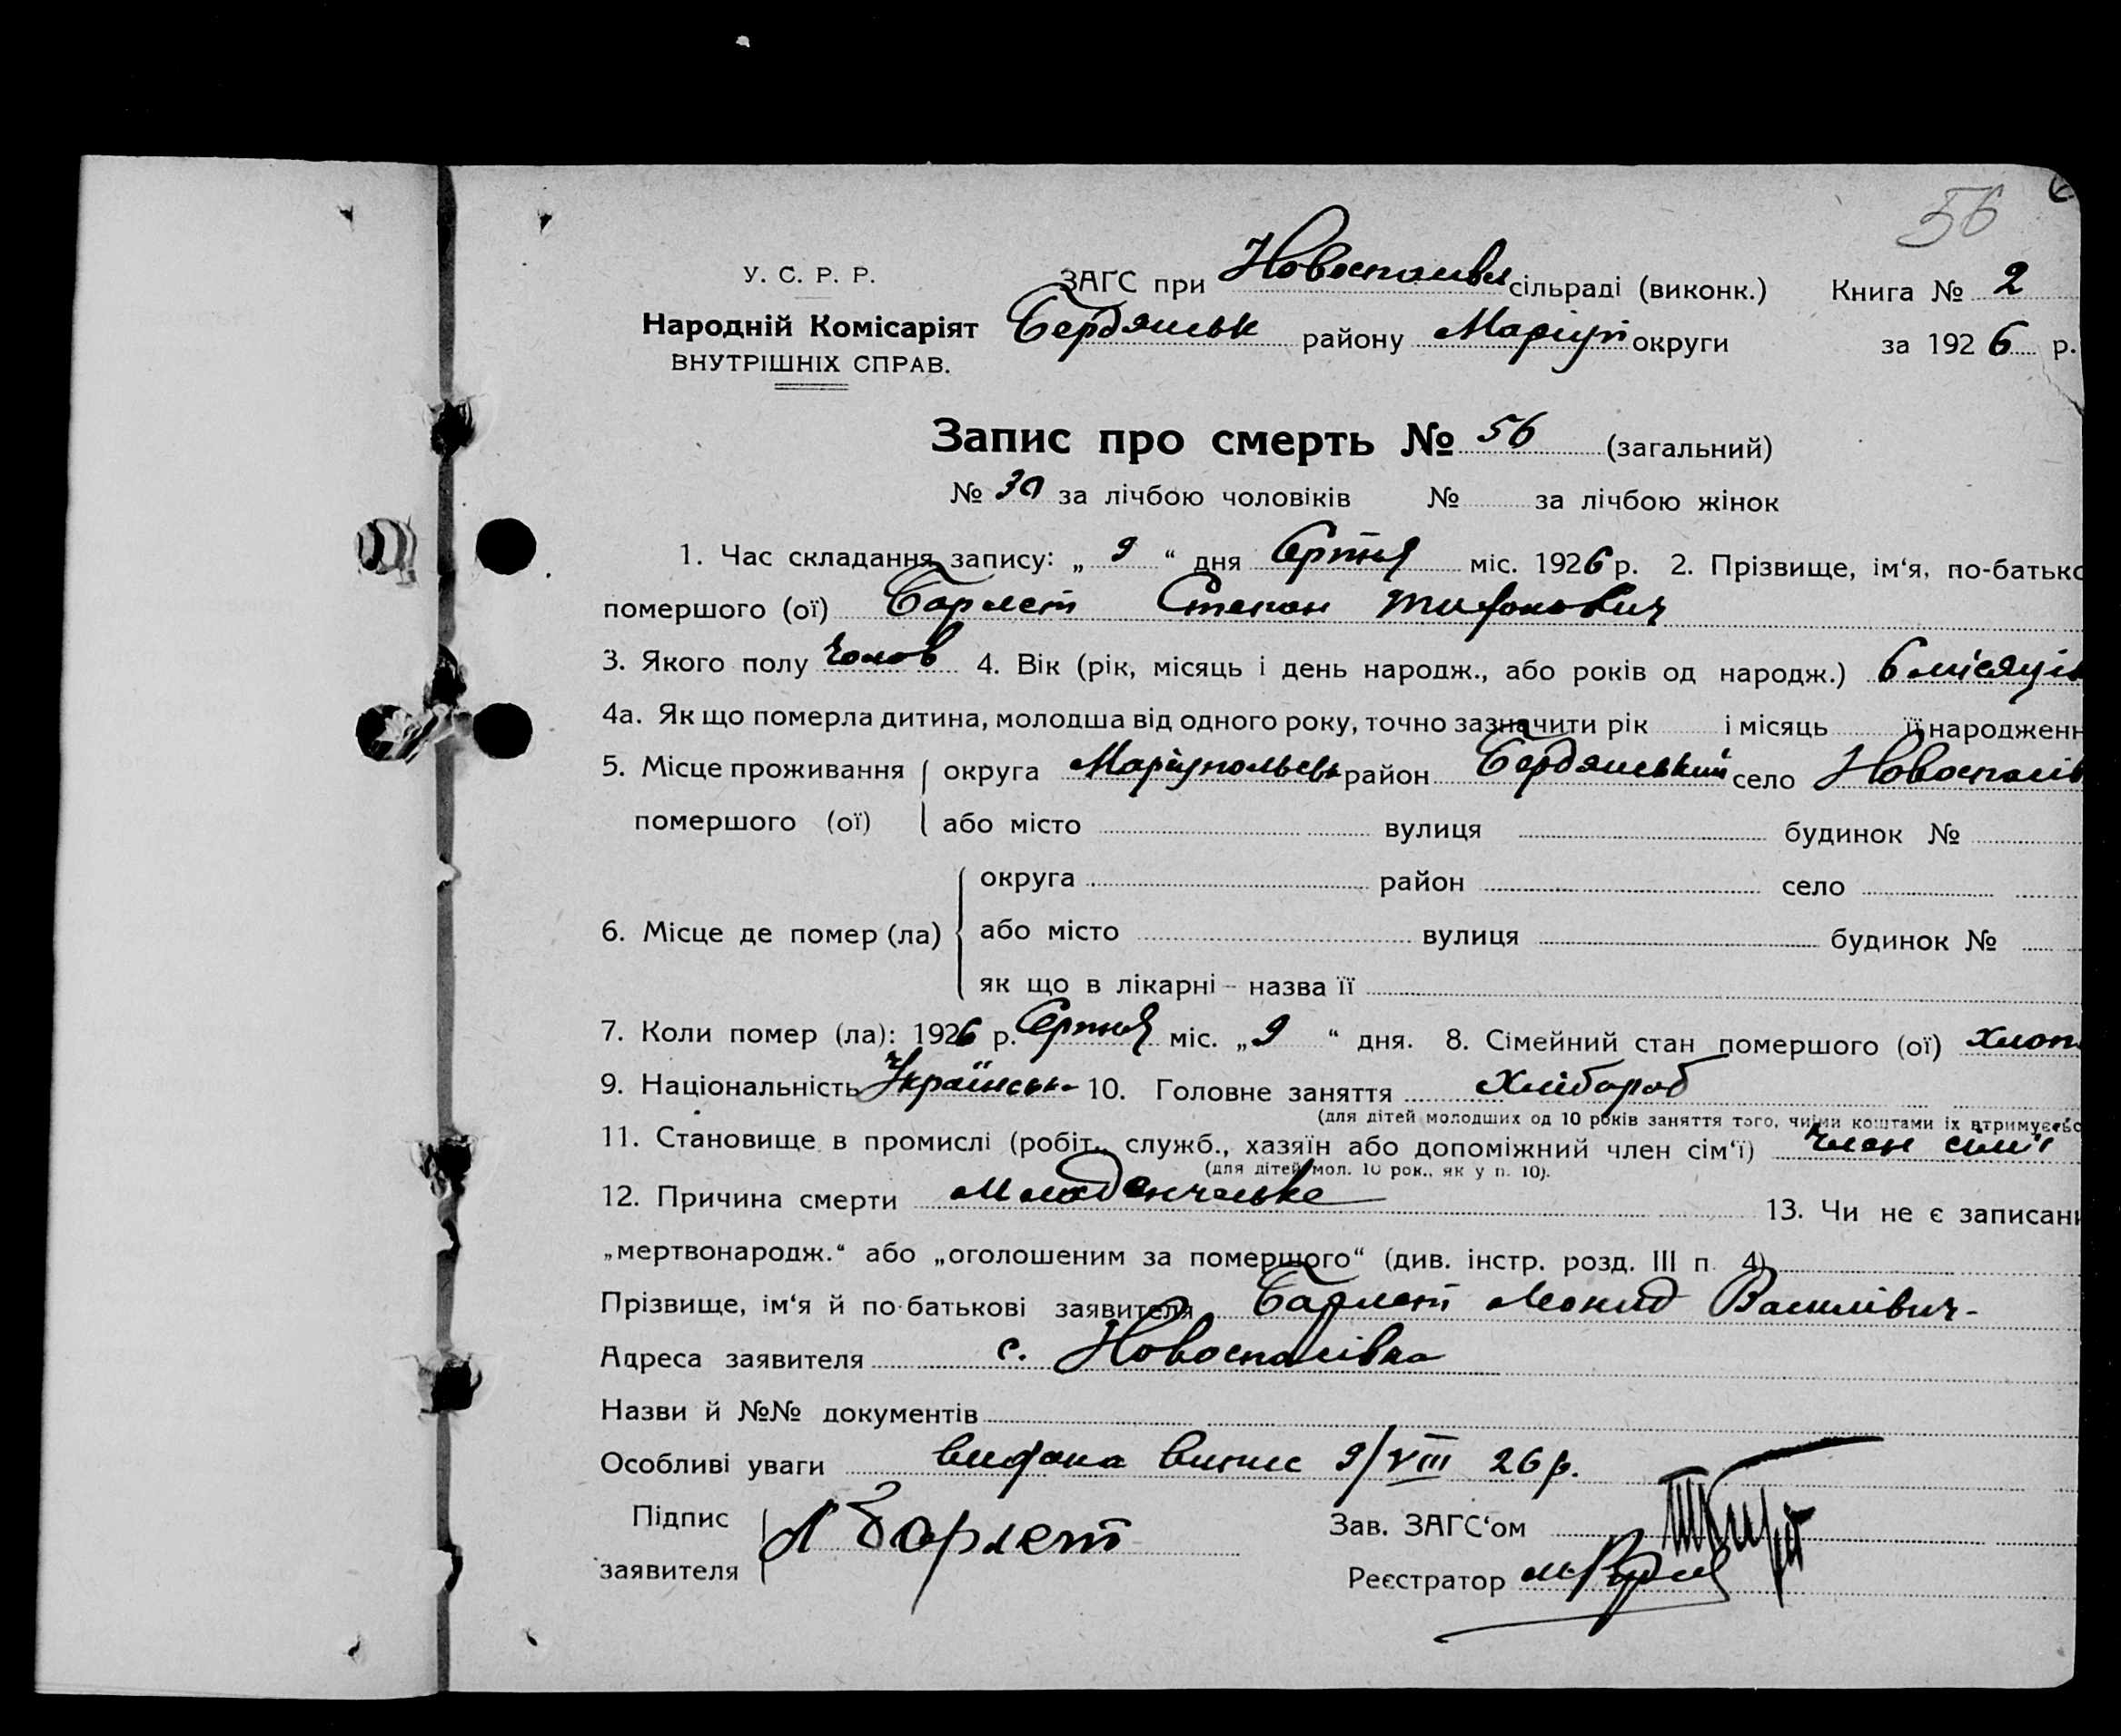 56
У. С. Р. Р.
Народній Комісаріят
ВНУТРІШНІХ СПРАВ.
ЗАГС при Новоспасівск сільраді (виконк.) Книга № 2
Бердянськ району Маріуп округи за 1926 р.
Запис про смерть № 56 (загальний)
№ 30 за лічбою чоловіків № за лічбою жінок
1. Час складання запису: „ 9 “ дня Серпня міс. 1926 р. 2. Прізвище, ім‘я, по-батько
помершого (ої) Барлет Степан
3. Якого полу Чолов 4. Вік (рік, місяць і день народж., або років од народж.) 6 місяців
4а. Як що померла дитина, молодша від одного року, точно зазначити рік і місяць її народженн
5. Місце проживання округа Маріупольськ район Бердянський село Новоспасів
помершого (ої) або місто вулиця будинок №
округа район село
6. Місце де помер (ла) або місто вулиця будинок №
як що в лікарні - назва її
7. Коли помер (ла): 1926 р. Серпня міс. „ 9 “ дня. 8. Сімейний стан помершого (ої) хлоп
9. Національність Українськ 10. Головне заняття Хлібороб
(для дітей молодших од 10 років заняття того, чиїми коштами їх втримуєтьс
11. Становище в промислі (робіт., служб., хазяїн або допоміжний член сім‘ї) член сім'ї
(для дітей мол. 10 рок., як у п. 10).
12. Причина смерти Младенчаське 13. Чи не є записан
„мертвонародж.“ або „оголошеним за померщого“ (див. інстр. розд. III п. 4)
Прізвище, ім‘я й по-батькові заявителя Барлет Леонид Василівич-
Адреса заявителя с. Новоспасівка
Назви й №№ документів
Особливі уваги видана випис 9/VIII 26 р.
Підпис
заявителя Л Барлет
Зав. ЗАГС‘ом
Реєстратор